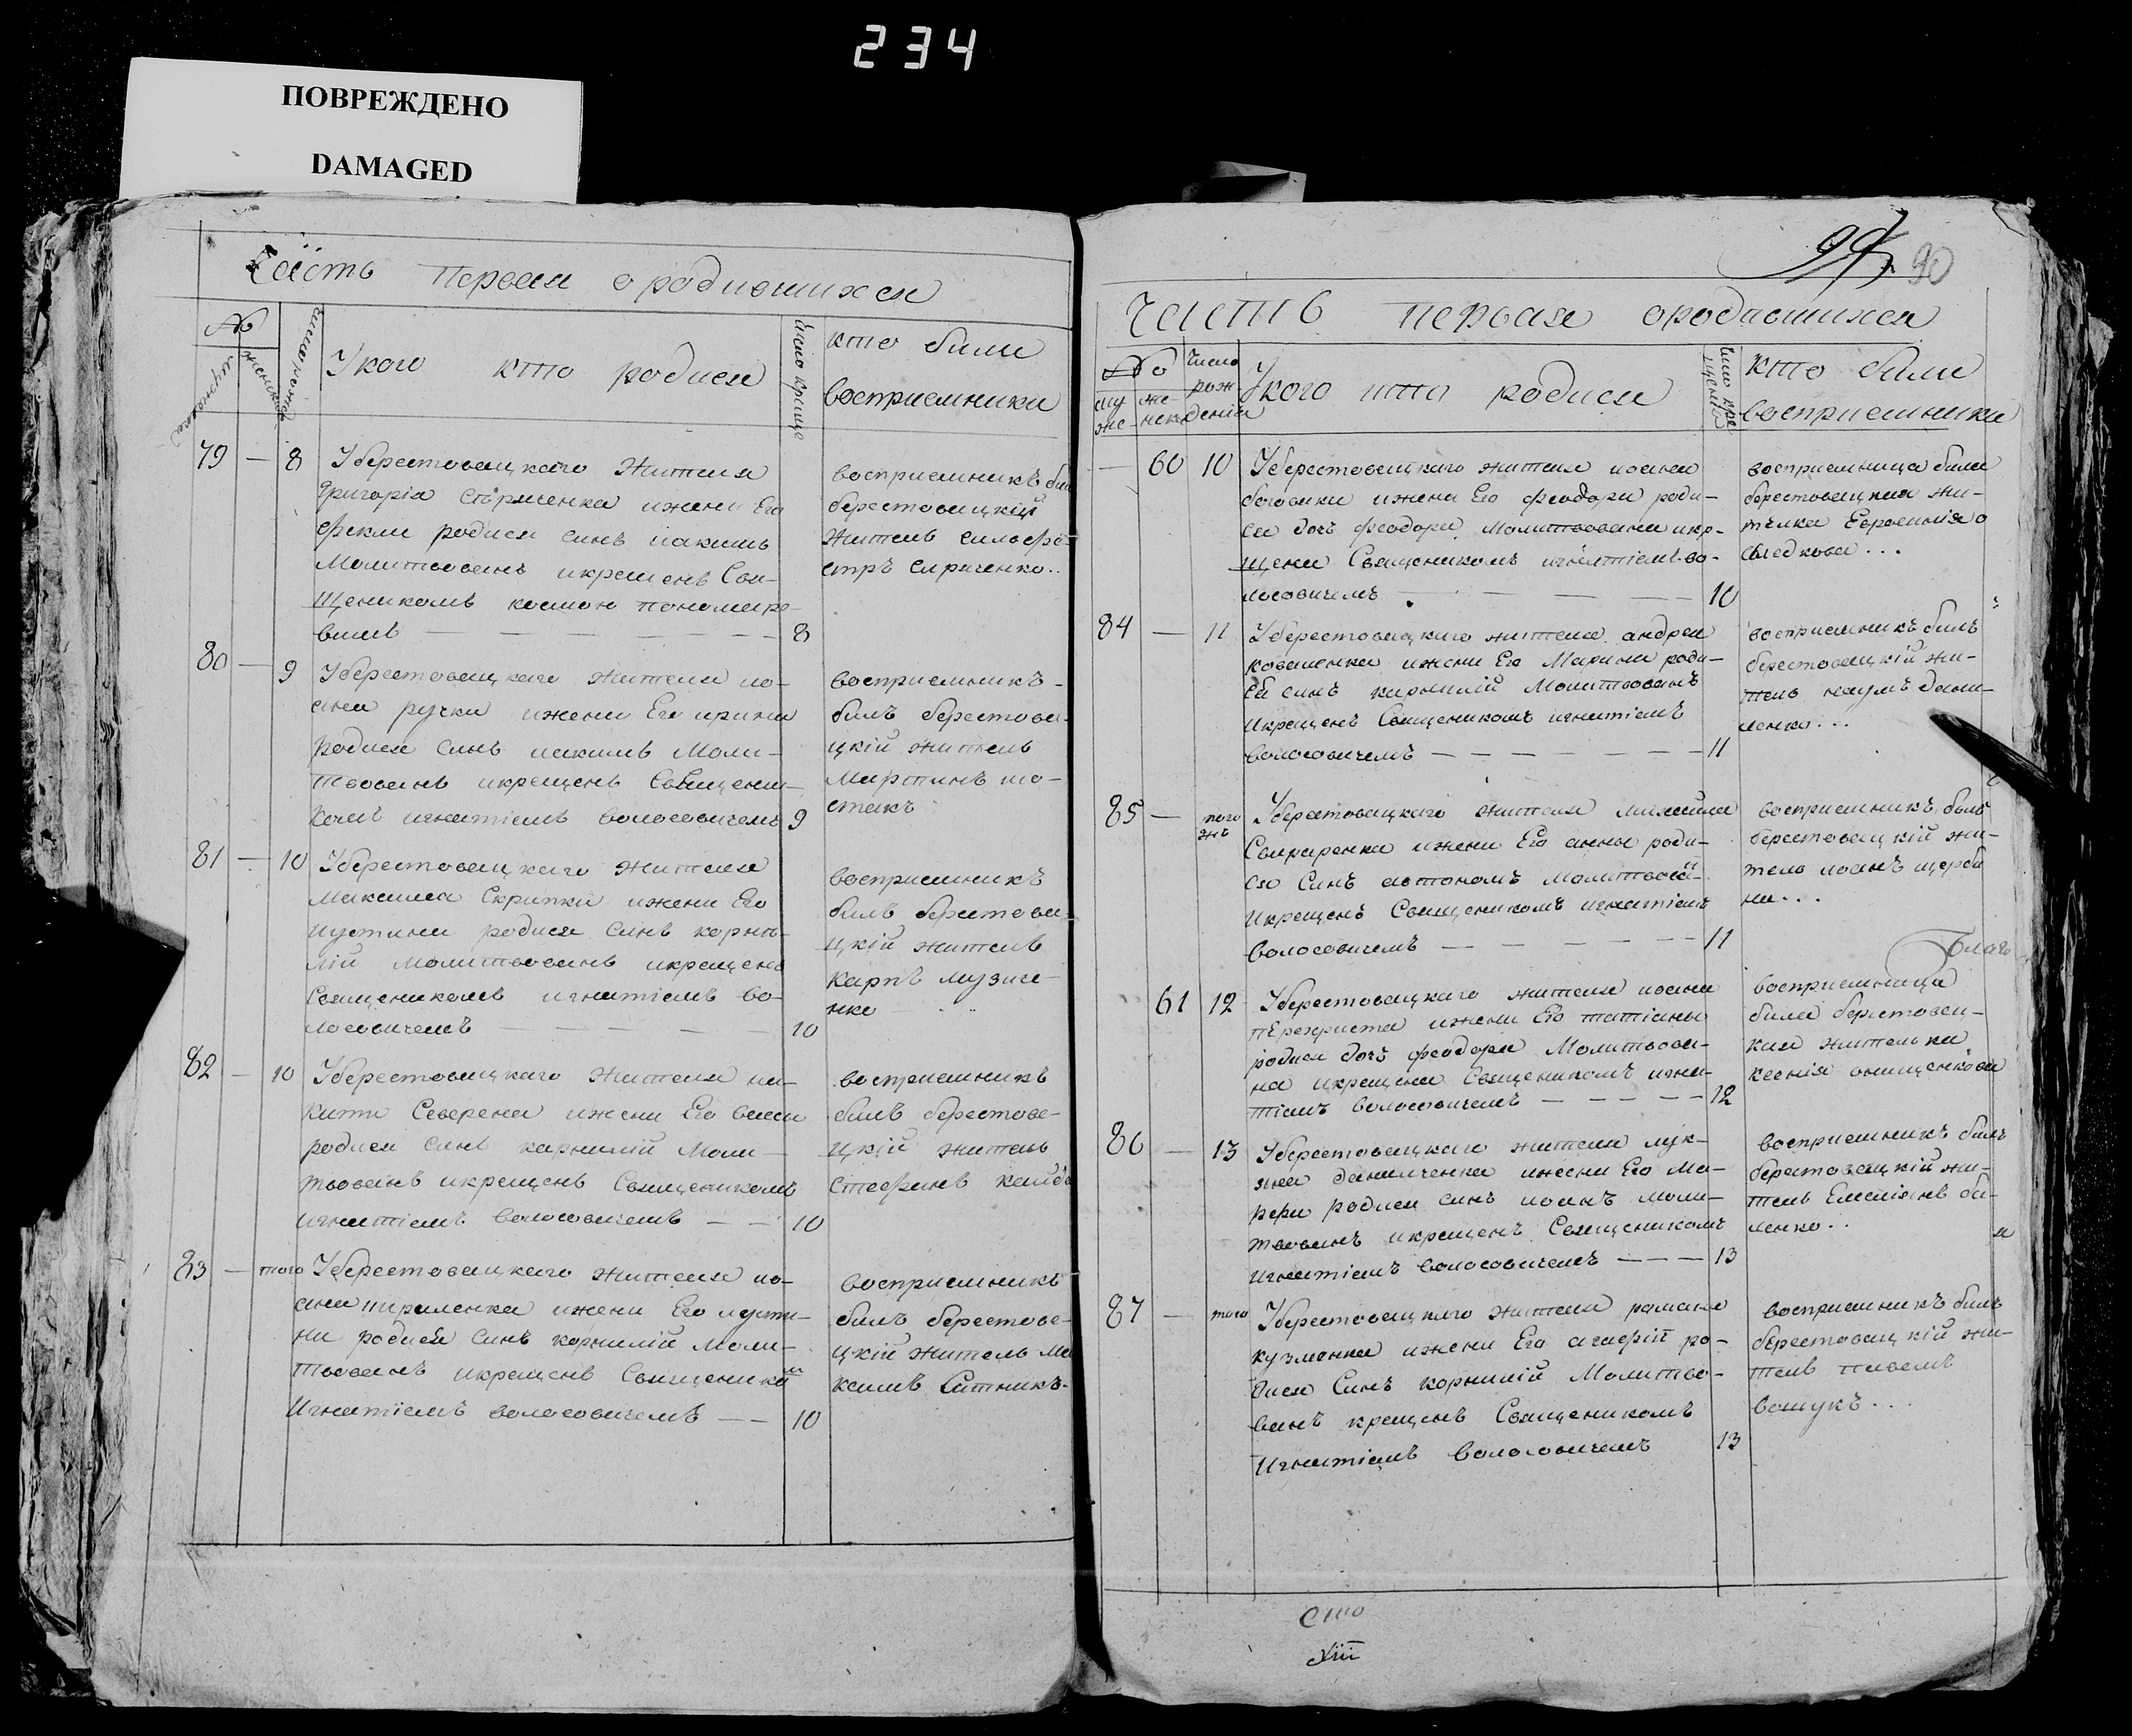 234
ПОВРЕЖДЕНО
DAMAGED
Часть Первая ородившихся
№
мужеска
женска
Укого кто родися
кто били
восприемники
79 — 8 Уберестовецкаго Жителя
Григорія ижени Его
фекли родися синъ иакимъ
Молитвованъ икрещенъ Свя-
щеникомъ космою пономаре-
вимъ — 8
восприемникъ бил
берестовецкій
житель силве-
стръ
80 — 9 Уберестовецкаго Жителя ио-
ана ручки ижени Его ирини
родися синъ иакимъ Моли-
твованъ икрещенъ Священи-
комъ игнатіемъ волосовичемъ 9
восприемникъ
билъ берестове-
цкій житель
Мартинъ шо-
стакъ
81 — 10 Уберестовецкаго Жителя
Максима Скрипки ижени Его
иустини родися Синъ корни-
лій Молитвованъ икрещенъ
Священикомъ игнатіемъ во-
лосовичемъ — 10
восприемникъ
билъ берестове-
цкій житель
карпъ музиче-
нко
82 — 10 Уберестовецкаго Жителя ни-
кити Северена ижени Его
родися синъ карнилій Моли-
твованъ икрещенъ Священикомъ
игнатіемъ волосовичемъ — 10
восприемникъ
билъ берестове-
цкій житель
Стефанъ
83 — того Уберестовецкаго Жителя ио-
ана ижени Его иусти-
ни родися синъ корнилій Моли-
твованъ икрещенъ Священико
Игнатіемъ волосовичемъ — 10
восприемникъ
билъ берестове-
цкій житель Ма
ксимъ Ситникъ
90
Часть первая ородившихся
№
му
же-
же-
нска
Число
рож-
денія
Укого кто родися
кто били
восприемники
— 60 10 Уберестовецкаго жителя иоана
боговики ижени Его феодори роди-
ся дочь феодора, Молитвована икре-
щена Священикомъ игнатіемъ во-
лосовичемъ — 10
восприемница била
берестовецкая жи-
телка Евросинія
84 — 11 Уберестовецкаго жителя андрея
коваленка ижени Его Марини роди-
ся синъ карнилій Молитвованъ
Икрещенъ Священикомъ игнатіемъ
волосовичемъ — 11
восприемникъ билъ
берестовецкій жи-
тель наумъ дани-
ленко...
85 — того
жъ Уберестовецкаго жителя михаила
ижени Его анны роди-
ся Синъ автономъ Молитвова
Икрещенъ Священикомъ игнатіемъ
волосовичемъ — 11
восприемникъ билъ
берестовецкій жи-
тель иоанъ щерби
на...
Благо
61 12 Уберестовецкаго жителя иоана
перехриста ижени Его татіаны
родися дочъ феодора Молитвова-
на икрещена Священикомъ игна-
тіемъ волосовичемъ — 12
восприемница
била берестовец-
кая жителька
ксенія онищенкова
86 — 13 Уберестовецкаго жителя лук-
яна данилченка ижени Его Ма-
рфи родися синъ иоанъ моли-
твованъ икрещенъ Священикомъ
Игнатіемъ волосовичемъ — 13
восприемникъ билъ
берестовецкій жи-
тель Емеліянъ би-
ленко..
87 — того Уберестовецкаго жителя романа
кузменка ижени Его агафіи ро-
дися Синъ корнилій Молитво-
ванъ крещенъ Священикомъ
Игнатіемъ волосовичемъ 13
восприемникъ билъ
берестовецкій жи-
тель павелъ
...
сто